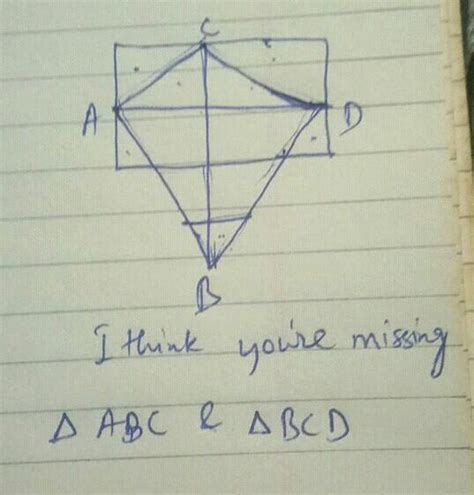 C
A D
B
I think you're missing
Δ ABC & Δ BCD